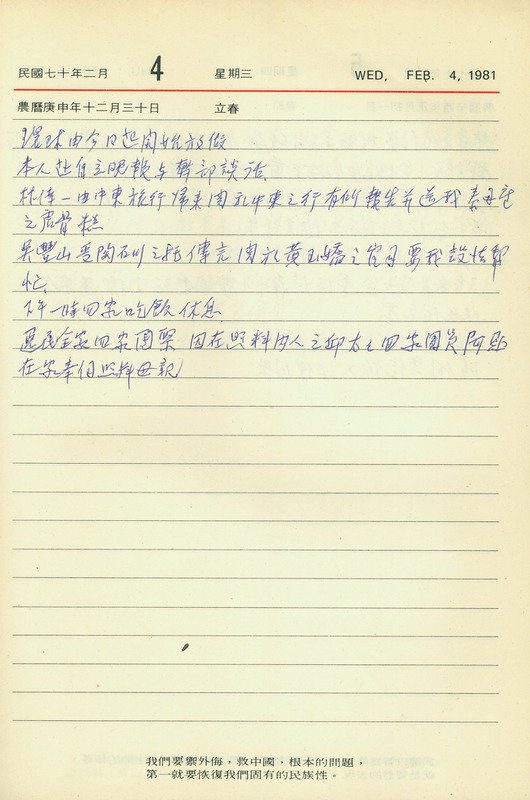 民國七十年二月 4 星期三 WED, FEB. 4, 1981
農曆庚申年十二月三十日 立春
環球由今日起開始放假
本人赴自立晚報与幹部談話
林偉一由中東旅行歸來 關於中東之行有所報告并送我
之鹿骨糕
吳豐山受陶百川之託傳言 關於黃玉嬌之官司要我設法幫
忙
下午一時回家吃飯休息
惠民全家回家團聚 因在照料內人之 太太回家團員
在家幸佣照料母親
我們要禦外侮，救中國，根本的問題，
第一就要恢復我們固有的民族性。